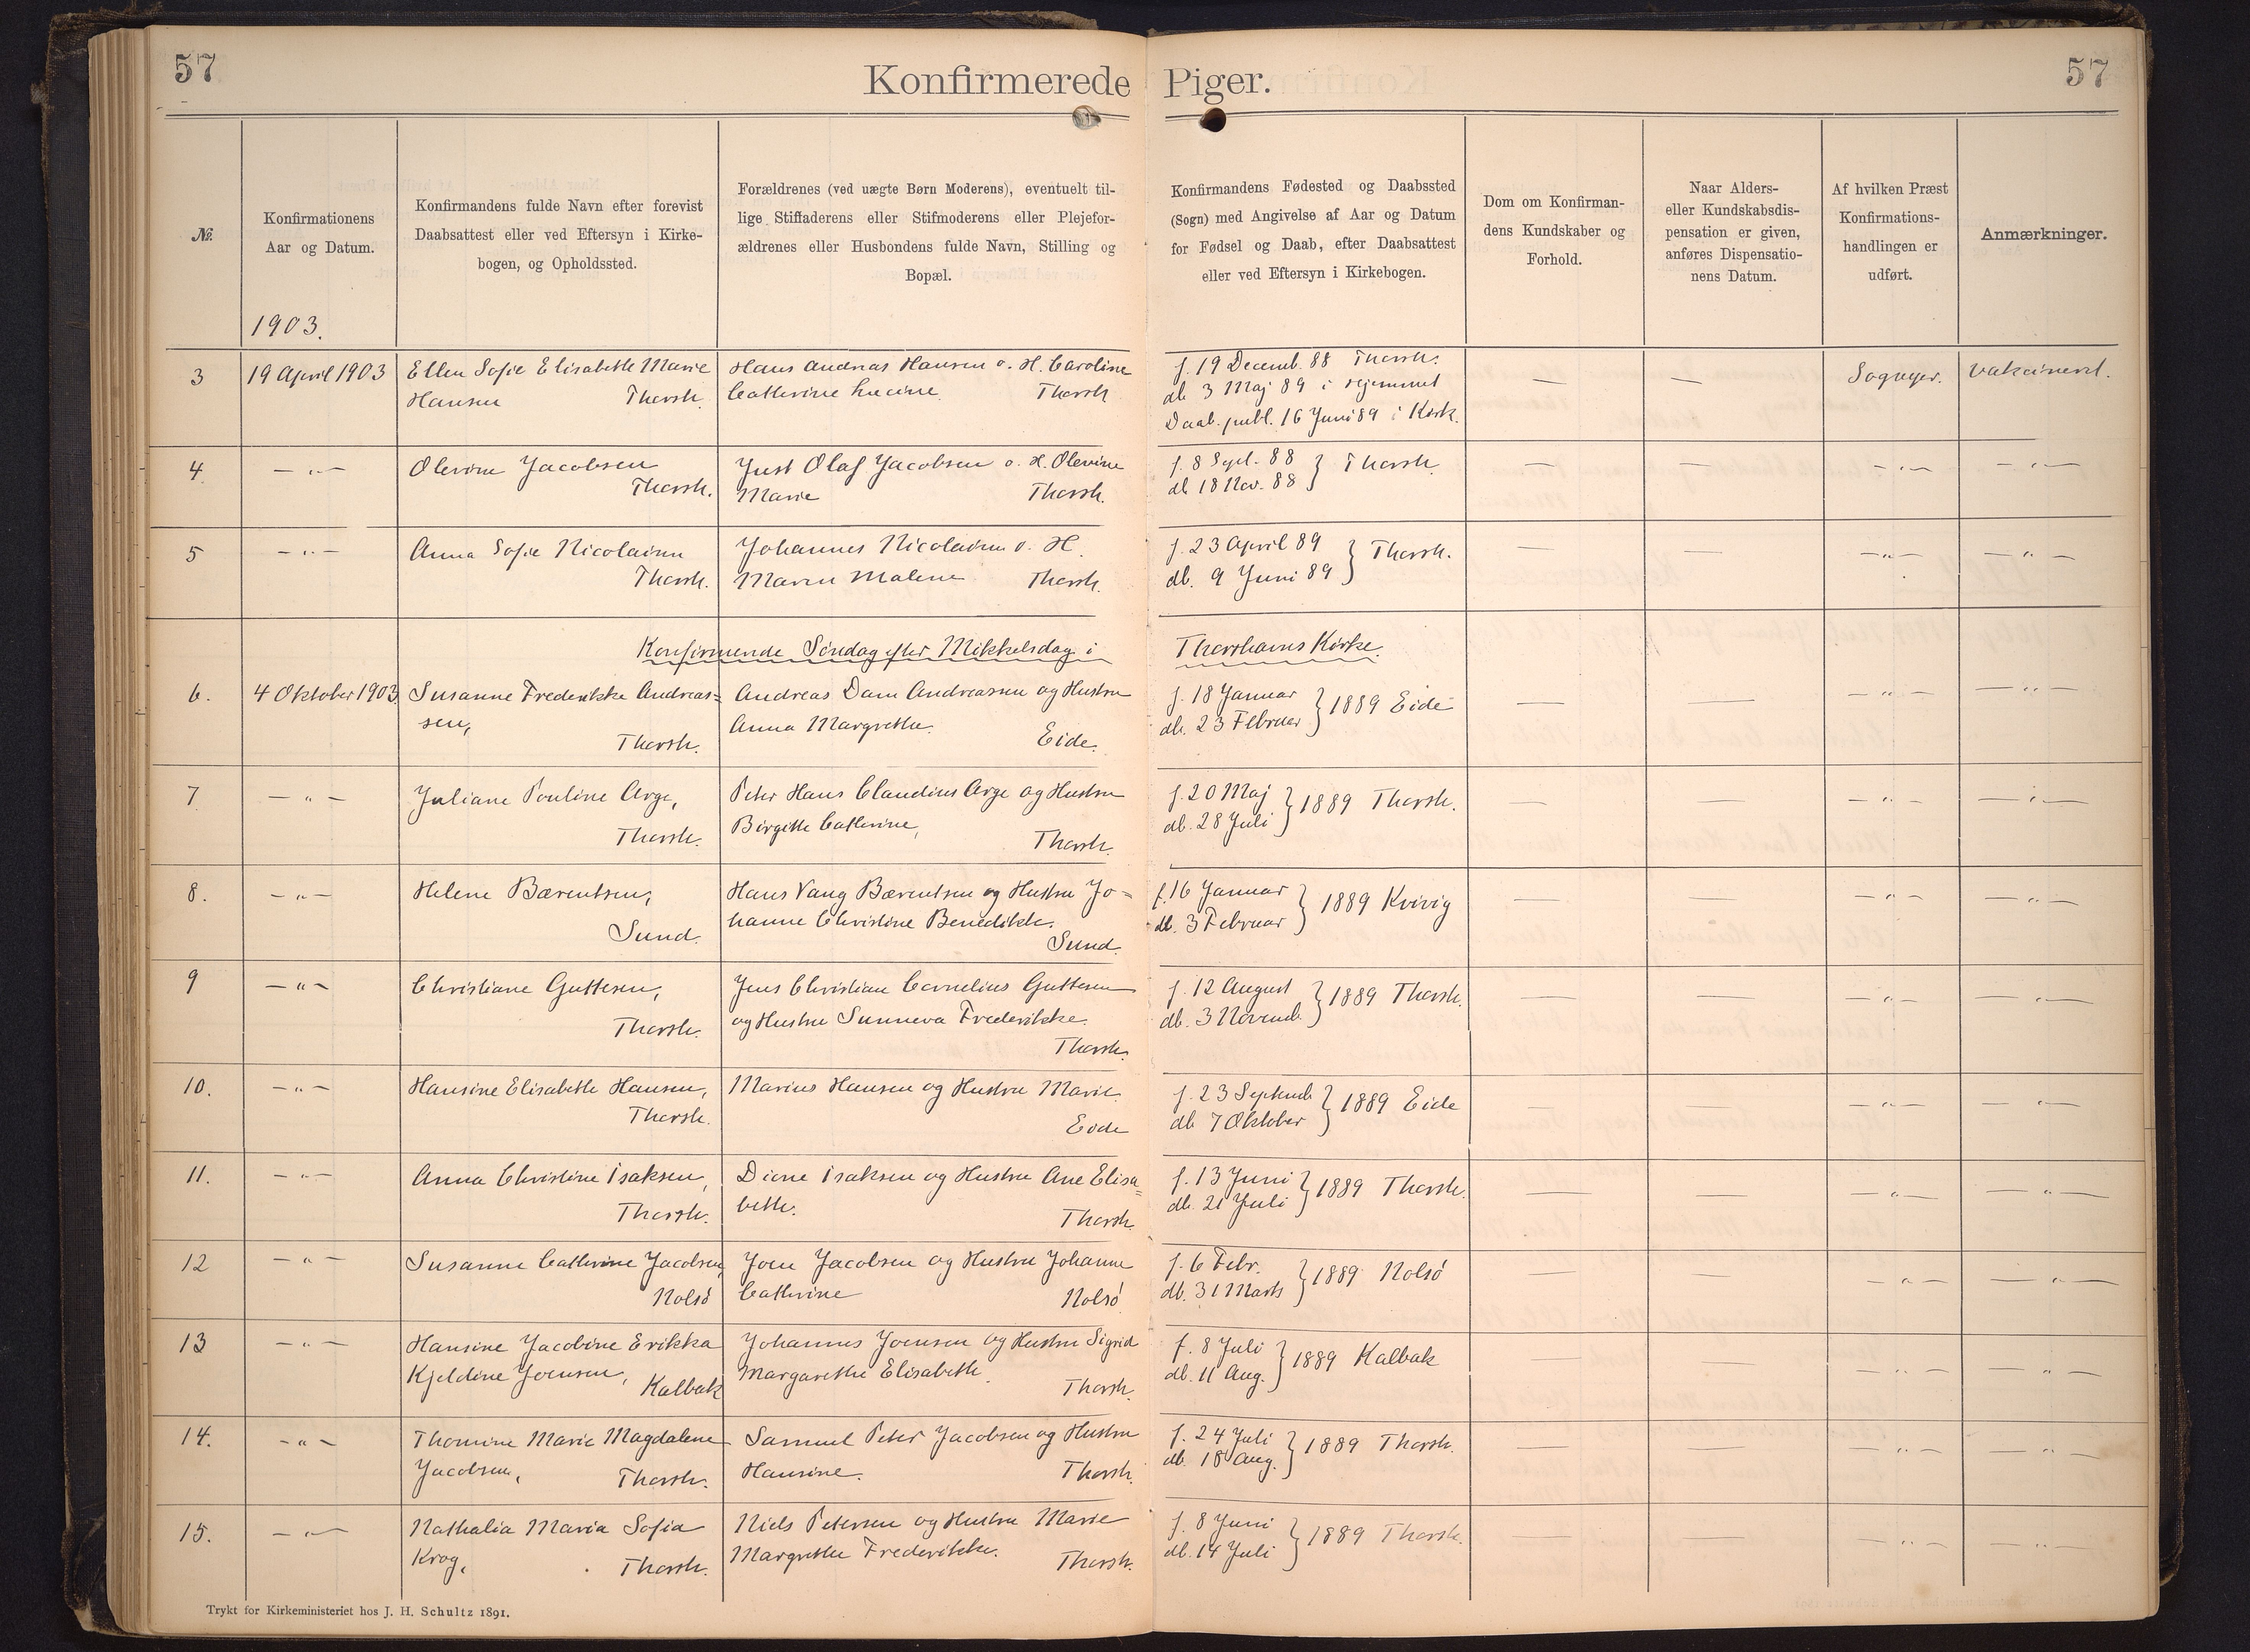 57
Konfirmerede Piger.
57
№.
Konfirmationens
Aar og Datum.
1903.
Konfirmandens fulde Navn efter forevist
Daabsattest eller ved Eftersyn i Kirke-
bogen, og Opholdssted.
Forældrenes (ved uægte Børn Moderens), eventuelt til-
lige Stiffaderens eller Stifmoderens eller Plejefor-
ældrenes eller Husbondens fulde Navn, Stilling og
Bopæl.
Konfirmandens Fødested og Daabssted
(Sogn) med Angivelse af Aar og Datum
for Fødsel og Daab, efter Daabsattest
eller ved Eftersyn i Kirkebogen.
Dom om Konfirman-
dens Kundskaber og
Forhold.
Naar Alders-
eller Kundskabsdis-
pensation er given,
anføres Dispensatio-
nens Datum.
Af hvilken Præst
Konfirmations-
handlingen er
udført.
Anmærkninger.
3
19 April 1903
Ellen Sofie Elisabeth Marie
Hansen Thorsh.
Hans Andreas Hansen o. H. Caroline
Catherine Lucine. Thorsh
f. 19 Decemb. 88 Thorsh.
db. 3 Maj 89 i Hjemmet
Daab. publ. 16 Juni 89 i Kirk.
—
—
Sognepr.
Vakcineret.
4.
— " —
Olevine Jacobsen
Thorsh.
Just Olaf Jacobsen o. H. Olevine
Marie Thorsh.
f. 8 Sept. 88 } Thorsh.
db 18 Nov. 88
—
—
— " —
— " —
5
— " —
Anna Sofie Nicolaisen
Thorsh.
Johannes Nicolaisen o. H.
Maren Malene Thorsh.
f. 23 April 89 } Thorsh.
db. 9 Juni 89
—
—
— " —
— " —
Konfirmerede Søndag efter Mikkelsdag i Thorshavns Kirke.
6.
4 Oktober 1903
Susanne Frederikke Andreas=
sen,
Thorsh.
Andreas Dam Andreasen og Hustru
Anna Margrethe.
Eide.
f. 18 Januar } 1889 Eide
db. 23 Februar
—
—
— " —
— " —
7
— " —
Juliane Pouline Arge,
Thorsh.
Peter Hans Claudius Arge og Hustru
Birgitte Cathrine,
Thorsh.
f. 20 Maj } 1889 Thorsh.
db. 28 Juli
—
—
— " —
— " —
8.
— " —
Helene Bærentsen,
Sund.
Hans Vang Bærentsen og Hustru Jo=
hanne Christine Benedikte.
Sund.
f. 16 Januar } 1889 Kvivig
db. 3 Februar
—
—
— " —
— " —
9
— " —
Christiane Guttesen,
Thorsh.
Jens Christian Cornelius Guttesen
og Hustru Sunneva Frederikke.
Thorsh.
f. 12 August } 1889 Thorsh.
db. 3 Novemb.
—
—
— " —
— " —
10.
— " —
Hansine Elisabeth Hansen,
Thorsh.
Marius Hansen og Hustru Marie.
Eide
f. 23 Septemb } 1889 Eide
db 7 Oktober
—
—
— " —
— " —
11.
— " —
Anna Christine Isaksen,
Thorsh.
Isaksen og Hustru Ane Elisa=
beth.
Thorsh
f. 13 Juni } 1889 Thorsh.
db. 21 Juli
—
—
— " —
— " —
12
— " —
Susanne Cathrine Jacobsen,
Nolsö
Joen Jacobsen og Hustru Johanne
Cathrine Nolsö
f. 6 Febr. } 1889 Nolsö
db. 31 Marts
—
—
— " —
— " —
13
— " —
Hansine Jacobine Erikka
Kjeldine Joensen, Kalbak
Johannes Joensen og Hustru Sigrid
Margarethe Elisabeth.
Thorsh.
f. 8 Juli } 1889 Kalbak
db. 11 Aug.
—
—
— " —
— " —
14.
— " —
Thomine Marie Magdalene
Jacobsen, Thorsh.
Samuel Peter Jacobsen og Hustru
Hansine. Thorsh.
f. 24 Juli } 1889 Thorsh.
db. 18 Aug.
—
—
— " —
— " —
15.
— " —
Nathalia Maria Sofia
Krog, Thorsh.
Niels Petersen og Hustru Marie
Margrethe Frederikke. Thorsh.
f. 8 Juni } 1889 Thorsh.
db. 14 Juli
—
—
— " —
— " —
Trykt for Kirkeministeriet hos J. H. Schultz 1891.